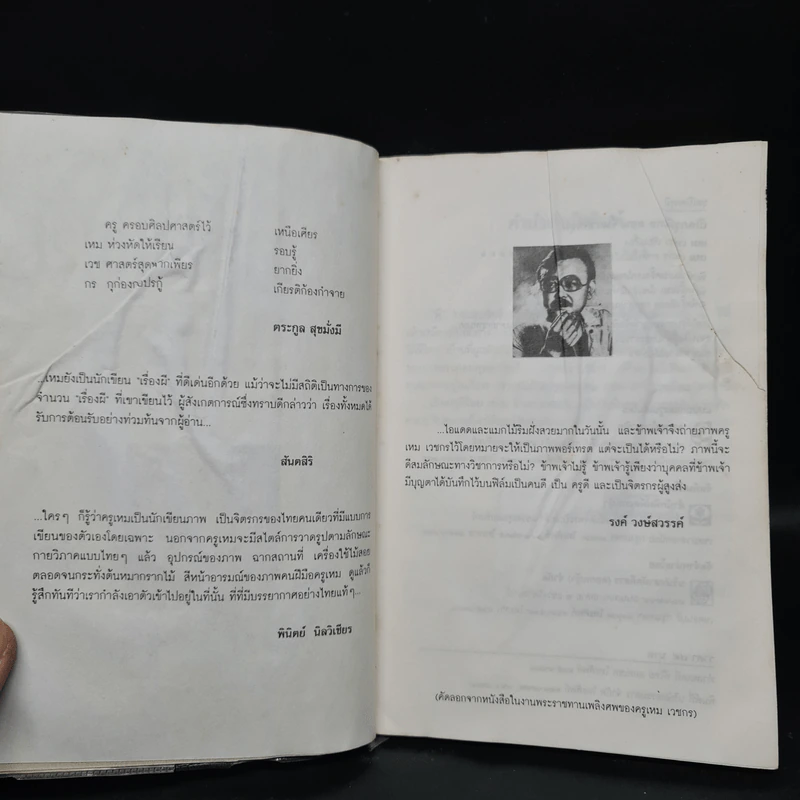 ครู ครอบศิลปศาสตร์ไว้ เหนือเศียร
เหม ห่วงหัดให้เรียน รอบรู้
เวช ศาสตร์สุดจากเพียร ยากยิ่ง
กร กุก่อง เกียรติก้องกำจาย
ตระกูล สุขมั่งมี
...เหมยังเป็นนักเขียน "เรื่องผี" ที่ดีเด่นอีกด้วย แม้ว่าจะไม่มีสถิติเป็นทางการของ
จำนวน "เรื่องผี" ที่เขาเขียนไว้ ผู้สังเกตการณ์ซึ่งทราบดีกล่าวว่า เรื่องทั้งหมดได้
รับการต้อนรับอย่างท่วมท้นจากผู้อ่าน...
สันตสิริ
...ใครๆ ก็รู้ว่าครูเหมเป็นนักเขียนภาพ เป็นจิตรกรของไทยคนเดียวที่มีแบบการ
เขียนของตัวเองโดยเฉพาะ นอกจากครูเหมจะมีสไตล์การวาดรูปตามลักษณะ
กายวิภาคแบบไทยๆ แล้ว อุปกรณ์ของภาพ ฉากสถานที่ เครื่องใช้ไม้สอย
ตลอดจนกระทั่งต้นหมากรากไม้ สีหน้าอารมณ์ของภาพคนฝีมือครูเหม ดูแล้วก็
รู้สึกทันทีว่าเรากำลังเอาตัวเข้าไปอยู่ในที่นั้น ที่ที่มีบรรยากาศอย่างไทยแท้ๆ...
พินิตย์ นิลวิเชียร
...ไอแดดและแมกไม้ริมฝั่งสวยมากในวันนั้น และข้าพเจ้าจึงถ่ายภาพครู
เหม เวชกรไว้โดยหมายจะให้เป็นภาพพอร์เทรต แต่จะเป็นได้หรือไม่? ภาพนี้จะ
ดีสมลักษณะทางวิชาการหรือไม่? ข้าพเจ้าไม่รู้ ข้าพเจ้ารู้เพียงว่าบุคคลที่ข้าพเจ้า
มีบุญตาได้บันทึกไว้บนฟิล์มเป็นคนดี เป็น ครูดี และเป็นจิตรกรผู้สูงส่ง
รงค์ วงษ์สวรรค์
(คัดลอกจากหนังสือในงานพระราชทานเพลิงศพของครูเหม เวชกร)